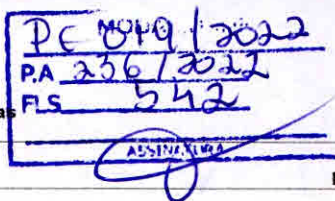 PC 049 / 2022
P.A 236 / 2022
as FLS 542
ASSINATURA